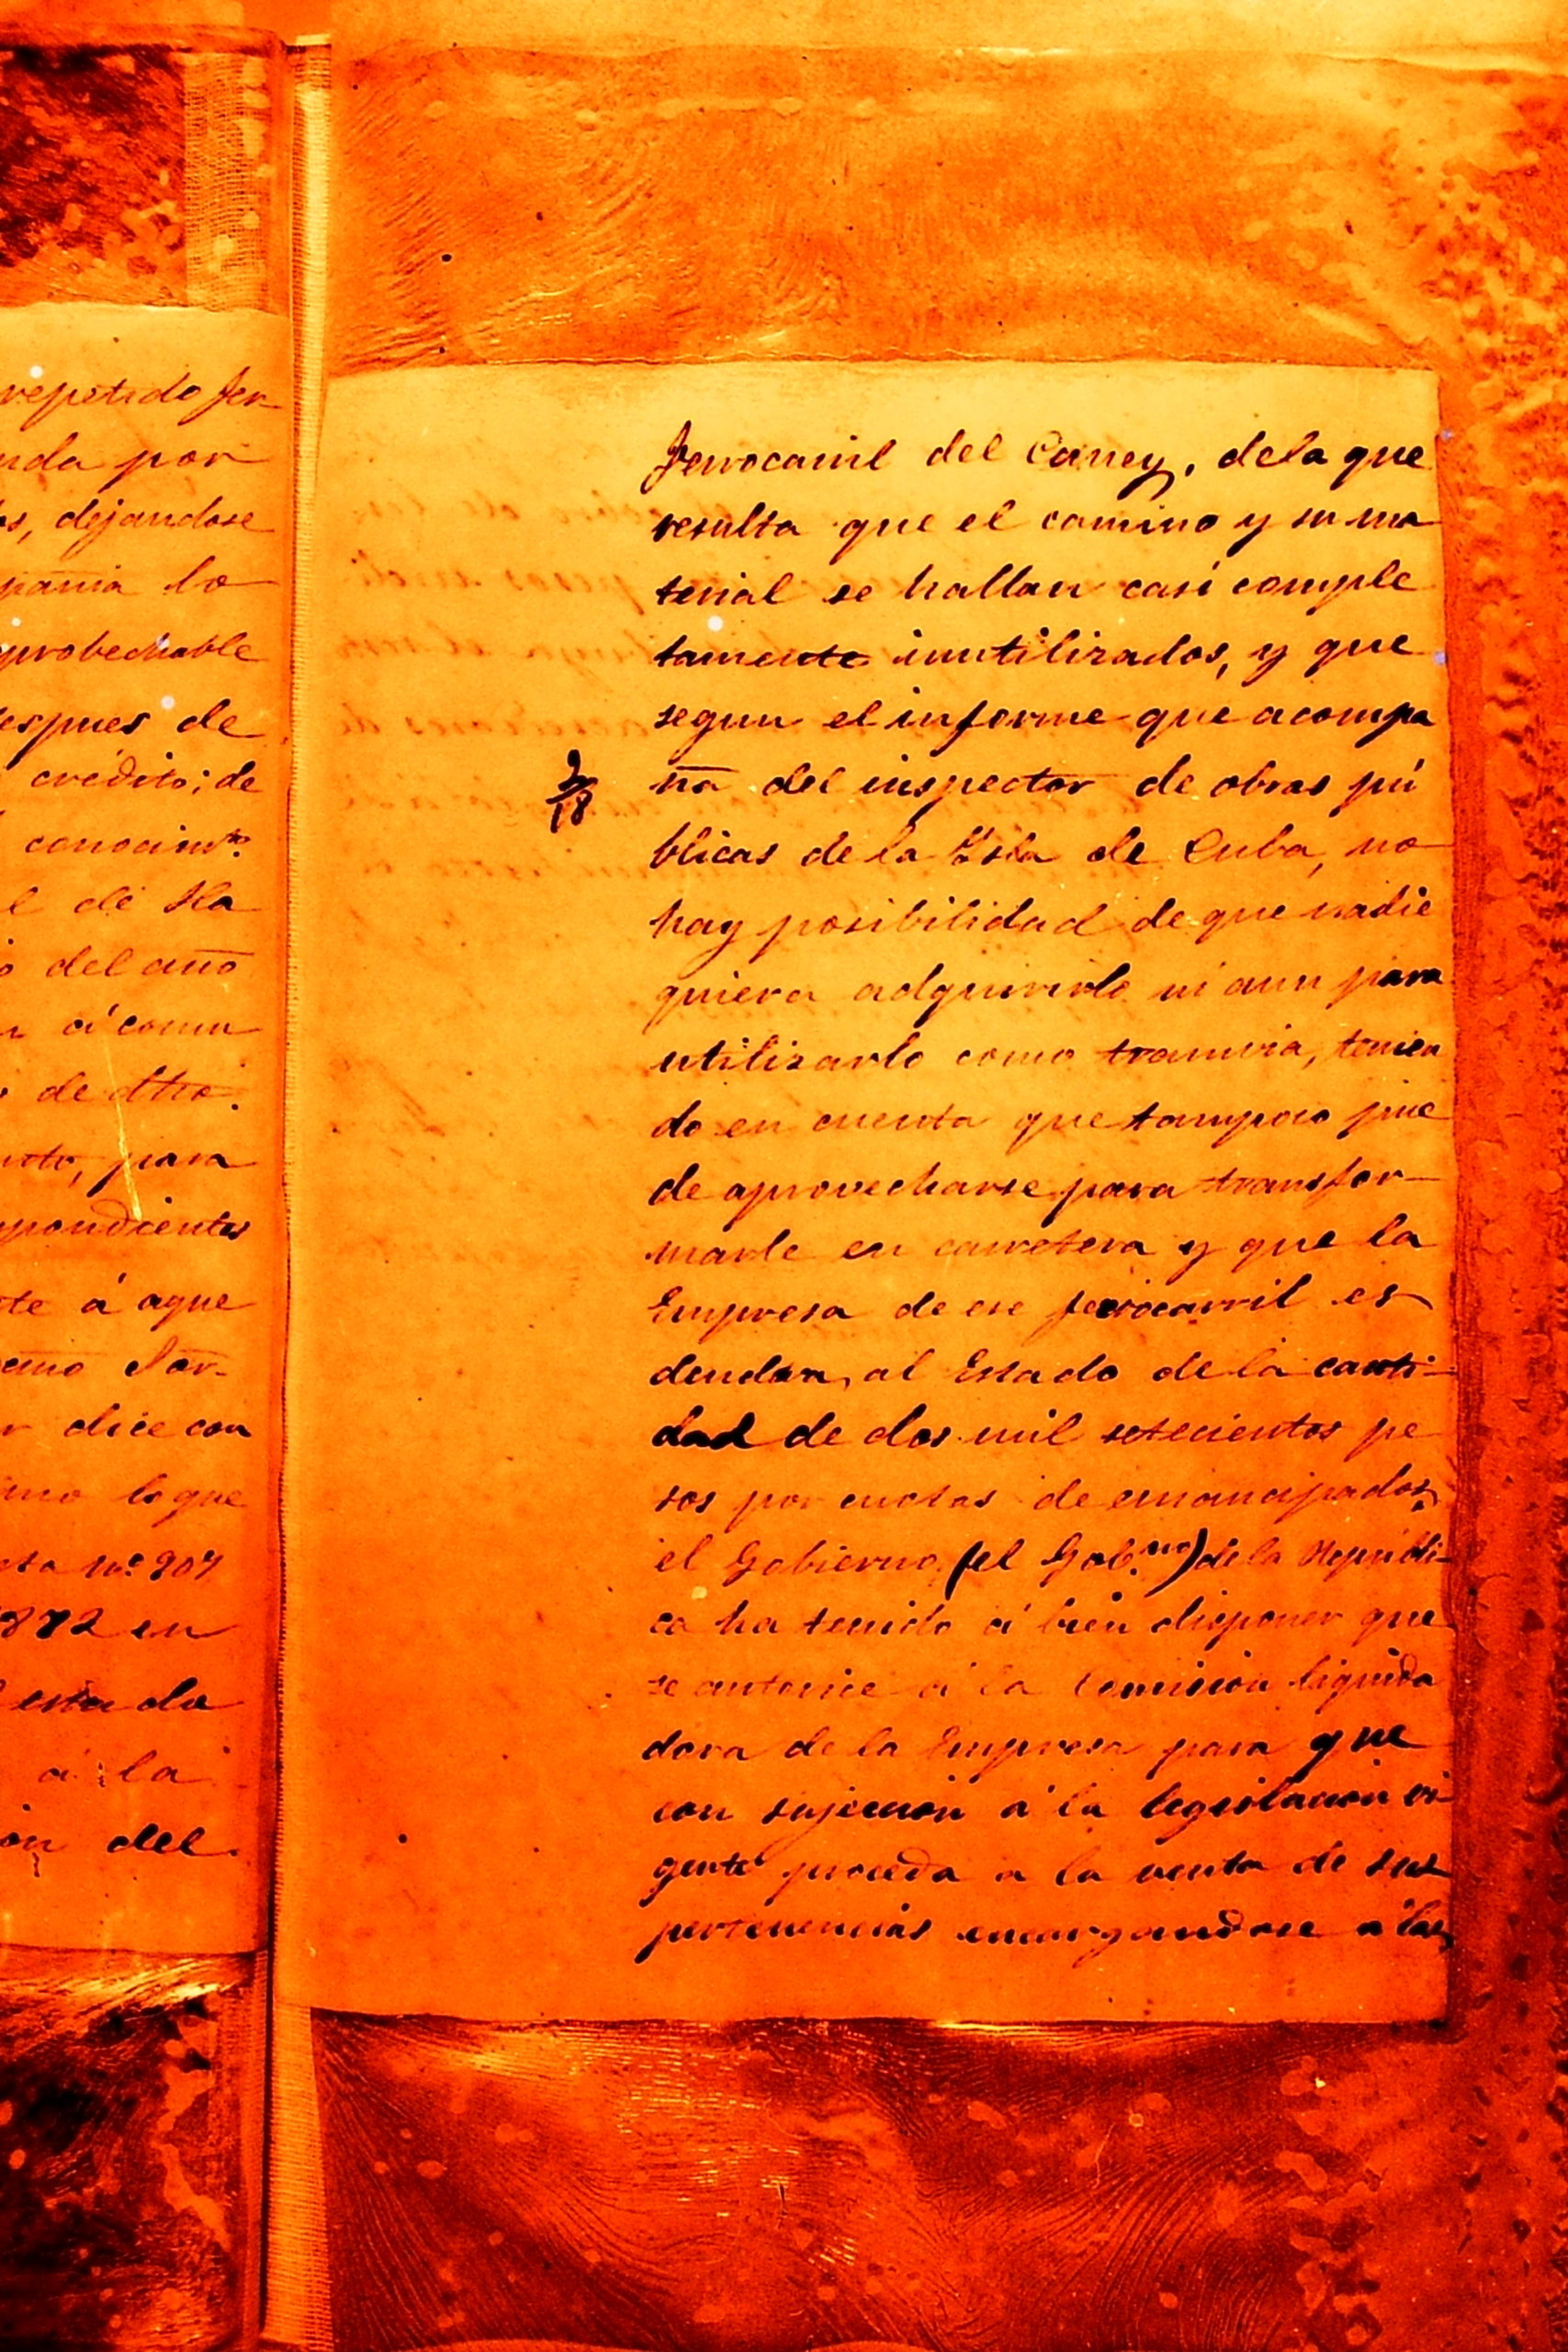 repetido fer
nda por
os, dejandose
pañia lo
aprobechable
despues de
credito; de
conocim.to
l de Sla
o del año
r á comu
o de dho.
nto, para
spondientes
te á aque
cmo Sor.
r dice con
imo lo que
sta nº 907
1872 en
esta da
á la
ón del
ferrocarril del Caney, dela que
resulta que el camino y su ma
terial se hallan casi comple
tamente inutilizados, y que
segun el informe que acompa
ña del inspector de obras pú
blicas de la Ysla de Cuba, no
hay posibilidad de que nadie
quiera adquirirle ni aun para
utilizarlo como tranvia, tenien
do en cuenta que tampoco pue
de aprovecharse para transfor-
marle en carretera y que la
Empresa de ese ferrocarril es
deudora, al Estado de la canti-
dad de dos mil setecientos pe
sos por cuotas de emancipados,
el Gobierno (el Gob.no) de la Repúbli-
ca ha tenido á bien disponer que
se autorice á la Comision liquida
dora de la Empresa para que
con sujecion á la legislacion vi-
gente proceda a la venta de sus
pertenencias encargandose á las